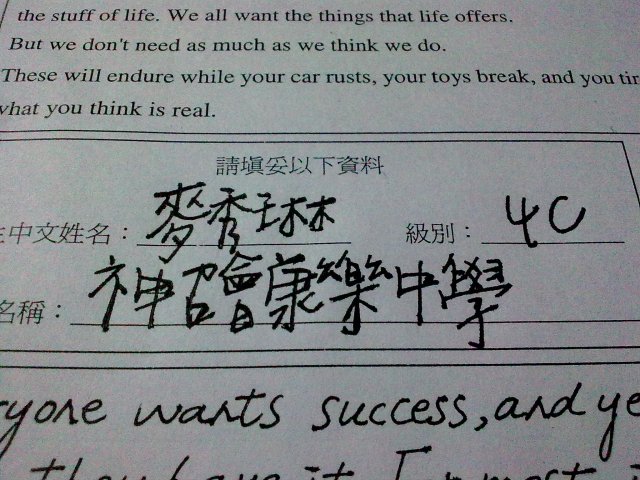 the stuff of life. We all want the things that life offers.
But we don't need as much as we think we do.
These will endure while your car rusts, your toys break, and you
what you think is real.
請填妥以下資料
生中文姓名：麥秀琳 級別：4C
名稱：神召會康樂中學
everyone wants success, and
they have it. For most